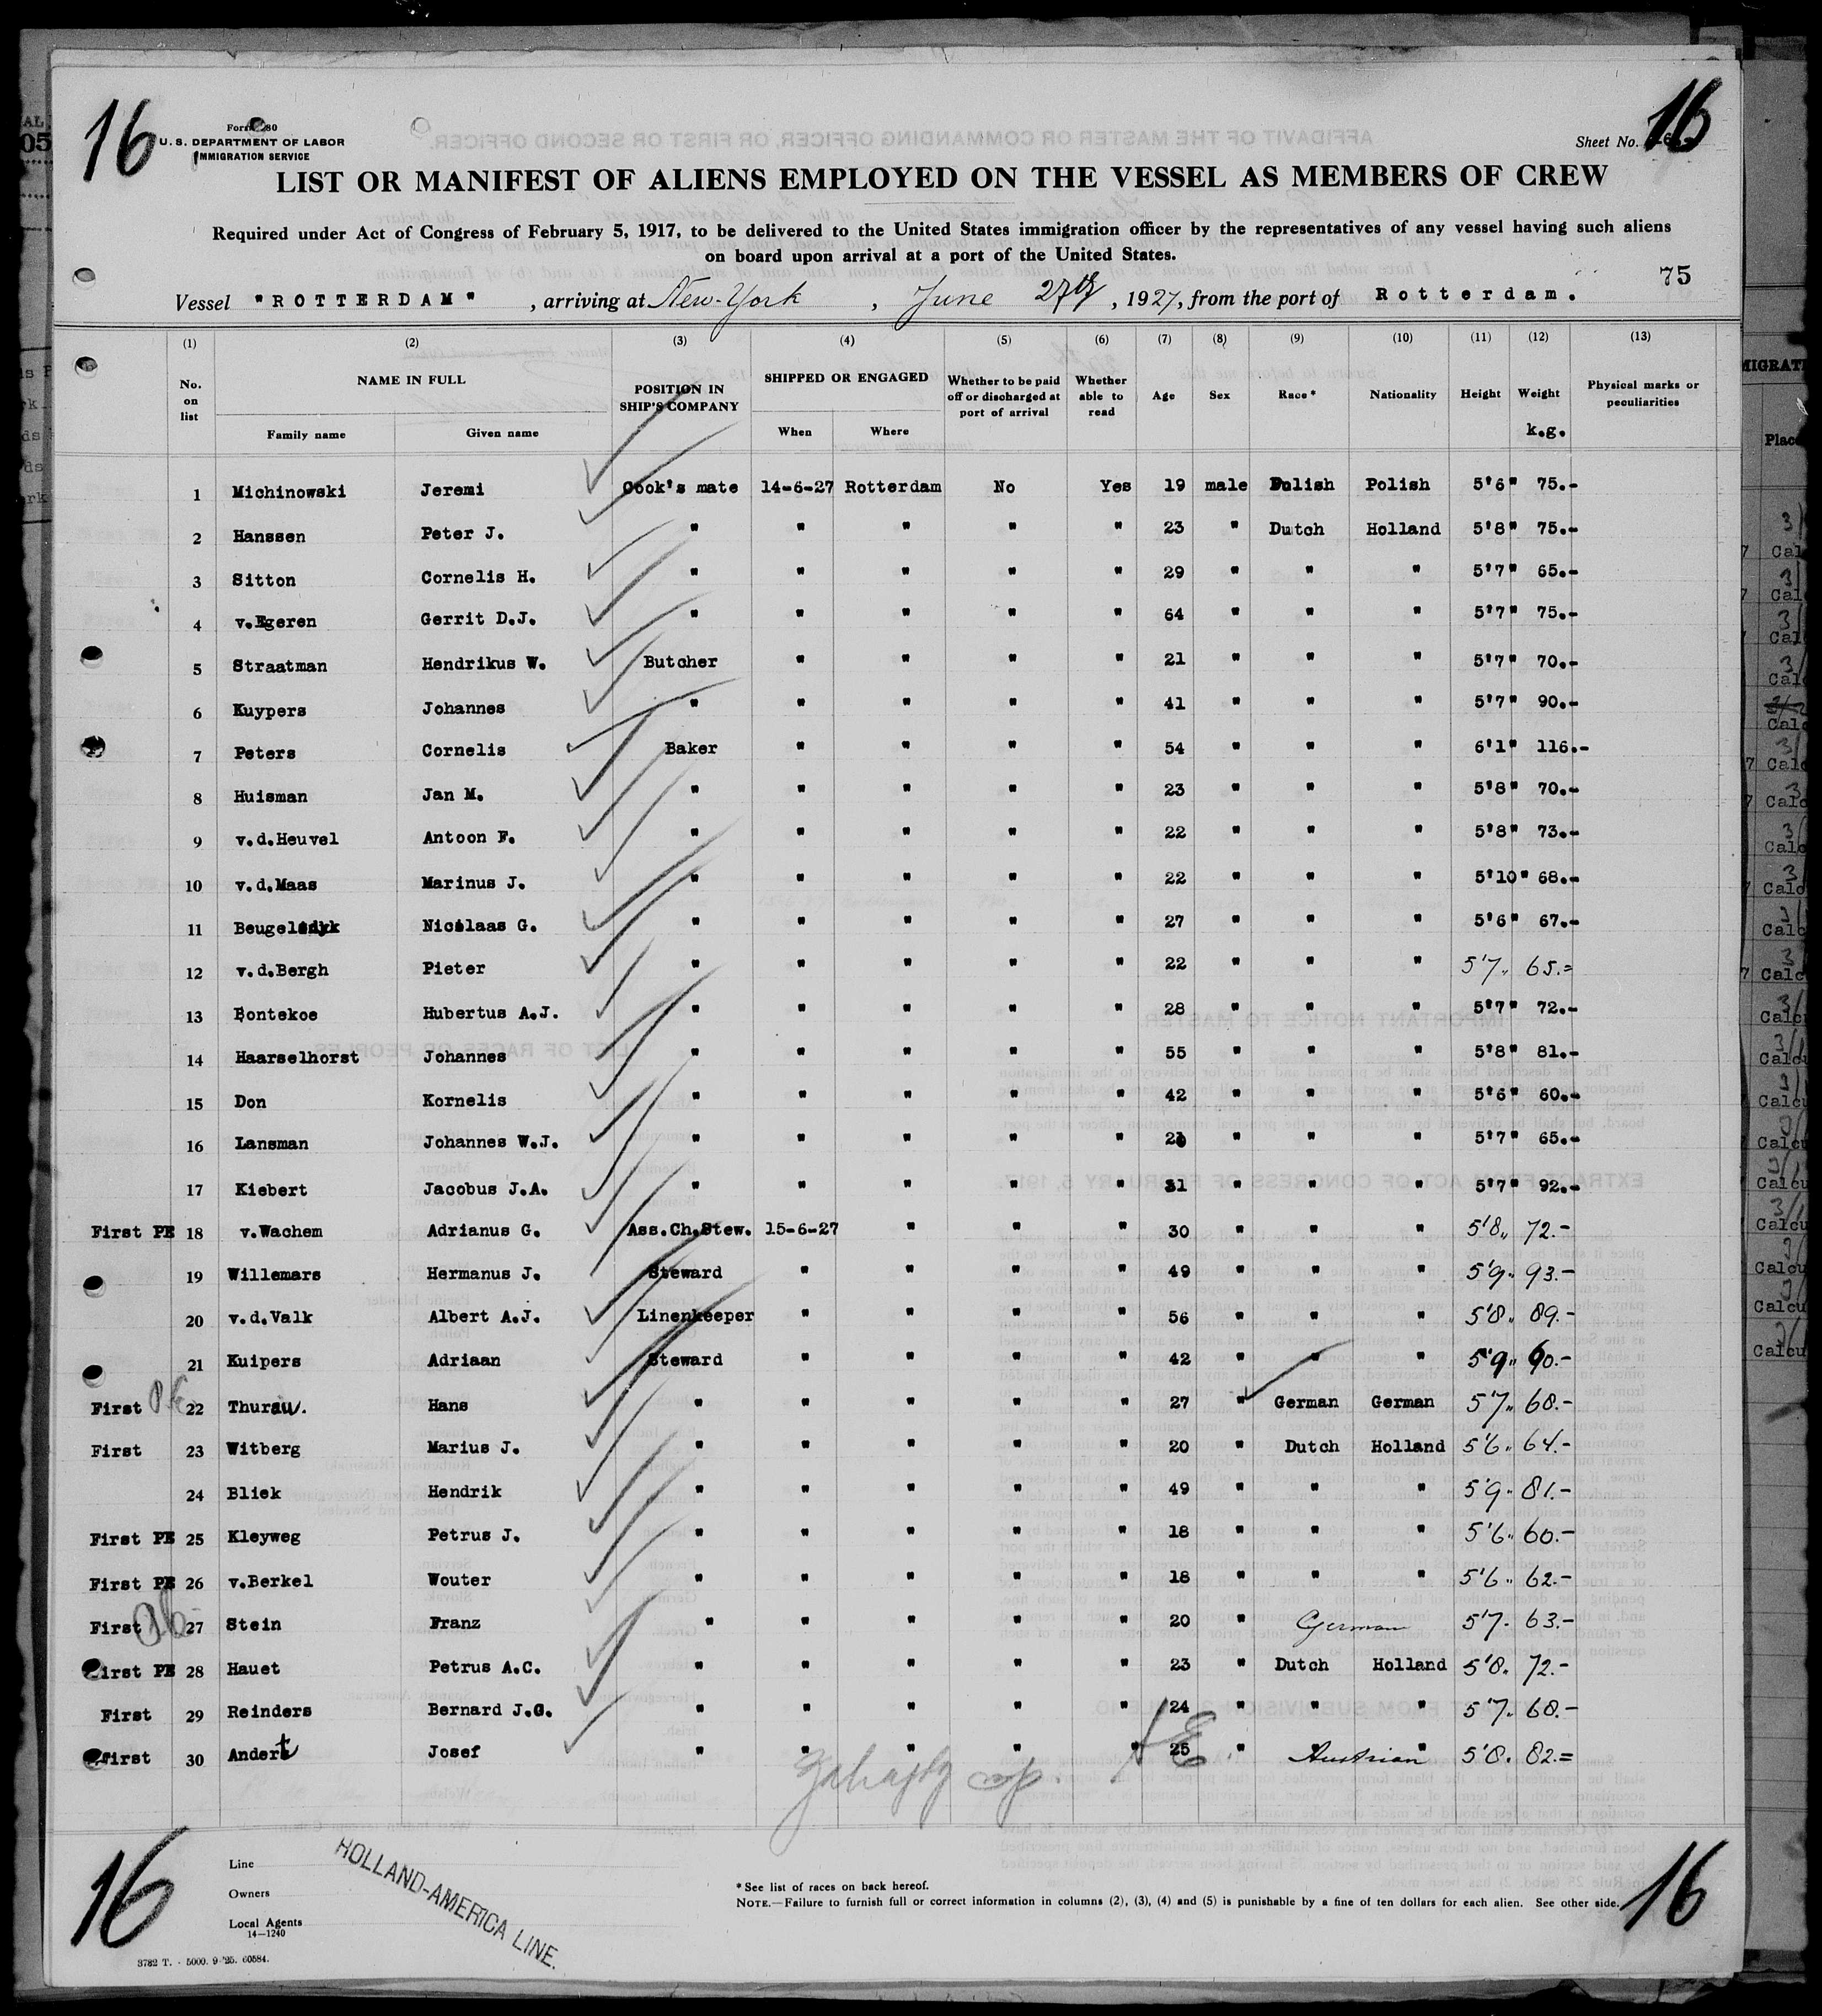 16
Form 680
U. S. DEPARTMENT OF LABOR
IMMIGRATION SERVICE
Sheet No. 16
LIST OR MANIFEST OF ALIENS EMPLOYED ON THE VESSEL AS MEMBERS OF CREW
Required under Act of Congress of February 5, 1917, to be delivered to the United States immigration officer by the representatives of any vessel having such aliens
on board upon arrival at a port of the United States.
75
Vessel "ROTTERDAM", arriving at New-York, June 27th, 1927, from the port of Rotterdam.
(1) (2) (3) (4) (5) (6) (7) (8) (9) (10) (11) (12) (13)
No. on list NAME IN FULL Family name Given name POSITION IN SHIP'S COMPANY SHIPPED OR ENGAGED When Where Whether to be paid off or discharged at port of arrival Whether able to read Age Sex Race* Nationality Height Weight k.g. Physical marks or peculiarities
1 Michinowski Jeremi Cook's mate 14-6-27 Rotterdam No Yes 19 male Polish Polish 5'6" 75.-
2 Hanssen Peter J. " " " " " 23 " Dutch Holland 5'8" 75.-
3 Sitton Cornelis H. " " " " " 29 " " " 5'7" 65.-
4 v.Egeren Gerrit D.J. " " " " " 64 " " " 5'7" 75.-
5 Straatman Hendrikus W. Butcher " " " " 21 " " " 5'7" 70.-
6 Kuypers Johannes " " " " " 41 " " " 5'7" 90.-
7 Peters Cornelis Baker " " " " 54 " " " 6'1" 116.-
8 Huisman Jan M. " " " " " 23 " " " 5'8" 70.-
9 v.d.Heuvel Antoon F. " " " " " 22 " " " 5'8" 73.-
10 v.d.Maas Marinus J. " " " " " 22 " " " 5'10" 68.-
11 Nicolaas G. " " " " " 27 " " " 5'6" 67.-
12 v.d.Bergh Pieter " " " " " 22 " " " 5'7" 65.=
13 Bontekoe Hubertus A.J. " " " " " 28 " " " 5'7" 72.-
14 Haarselhorst Johannes " " " " " 55 " " " 5'8" 81.-
15 Don Kornelis " " " " " 42 " " " 5'6" 60.-
16 Lansman Johannes W.J. " " " " " " " " 5'7" 65.-
17 Kiebert Jacobus J.A. " " " " " 31 " " " 5'7" 92.-
First PE 18 v.Wachem Adrianus G. Ass.Ch.Stew. 15-6-27 " " " 30 " " " 5'8" 72.-
19 Willemars Hermanus J. Steward " " " " 49 " " " 5'9" 93.-
20 v.d.Valk Albert A.J. Linenkeeper " " " " 56 " " " 5'8" 89.-
21 Kuipers Adriaan Steward " " " " 42 " " " 5'9" 60.-
First PE 22 Thurau. Hans " " " " " 27 " German German 5'7" 68.-
First 23 Witberg Marius J. " " " " " 20 " Dutch Holland 5'6" 64.-
24 Bliek Hendrik " " " " " 49 " " " 5'9" 81.-
First PE 25 Kleyweg Petrus J. " " " " " 18 " " " 5'6" 60.-
First PE 26 v.Berkel Wouter " " " " " 18 " " " 5'6" 62.-
First 27 Stein Franz " " " " " 20 " German 5'7" 63.-
First PE 28 Hauet Petrus A.C. " " " " " 23 " Dutch Holland 5'8" 72.-
First 29 Reinders Bernard J.G. " " " " " 24 " " " 5'7" 68.-
First 30 Andert Josef " " " " " 25 " " Austrian " 5'8" 82.=
16
Line
Owners
Local Agents
14—1240
HOLLAND-AMERICA LINE.
*See list of races on back hereof.
NOTE.—Failure to furnish full or correct information in columns (2), (3), (4) and (5) is punishable by a fine of ten dollars for each alien. See other side.
16
3782 T. - 5000. 9-'25. 60584.